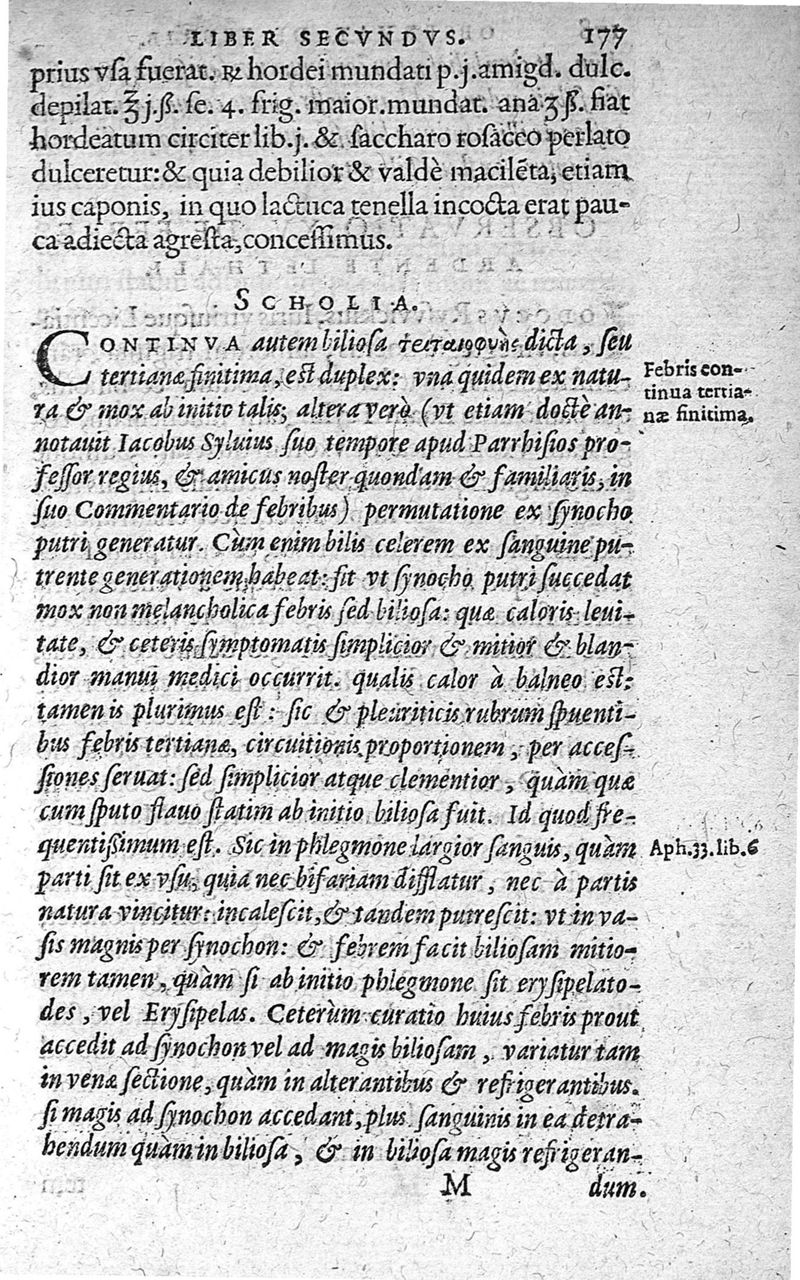 LIBER SECVNDVS. 177
prius vſa fuerat. ℞ hordei mundati p.j. amigd. dulc.
depilat. ℥ j.ß. ſe. 4. frig. maior. mundat. ana ʒ ß. fiat
hordeatum circiter lib.j. & ſaccharo roſaceo perlato
dulceretur: & quia debilior & valdè macilẽta, etiam
ius caponis, in quo lactuca tenella incocta erat pau-
ca adiecta agreſta, conceſſimus.
SCHOLIA.
CONTINVA autem bilioſa dicta, ſeu
tertianæ finitima, eſt duplex: vna quidem ex natu-
Febris con-
tinua tertia-
næ finitima.
ra & mox ab initio talis; altera verò (vt etiam doctè an-
notauit Iacobus Syluius ſuo tempore apud Parrhiſios pro-
feſſor regius, & amicus noſter quondam & familiaris, in
ſuo Commentario de febribus) permutatione ex ſynocho
putri generatur. Cùm enim bilis celerem ex ſanguine pu-
trente generationem habeat: fit vt ſynocho putri ſuccedat
mox non melancholica febris ſed bilioſa: quæ caloris leui-
tate, & ceteris ſymptomatis ſimplicior & mitior & blan-
dior manui medici occurrit. qualis calor à balneo eſt:
tamen is plurimus eſt: ſic & pleuriticis rubrum ſpuenti-
bus febris tertianæ, circuitionis proportionem, per acceſ-
ſiones ſeruat: ſed ſimplicior atque clementior, quàm quæ
cum ſputo flauo ſtatim ab initio bilioſa fuit. Id quod fre-
quentißimum eſt. Sic in phlegmone largior ſanguis, quàm
Aph. 33. lib. 6
parti ſit ex vſu, quia nec bifariam difflatur, nec à partis
natura vincitur: incaleſcit, & tandem putreſcit: vt in va-
ſis magnis per ſynochon: & febrem facit bilioſam mitio-
rem tamen, quàm ſi ab initio phlegmone ſit eryſipelato-
des, vel Eryſipelas. Ceterùm curatio huius febris prout
accedit ad ſynochon vel ad magis bilioſam, variatur tam
in venæ ſectione, quàm in alterantibus & refrigerantibus.
ſi magis ad ſynochon accedant, plus ſanguinis in ea detra-
hendum quàm in bilioſa, & in bilioſa magis refrigeran-
M dum.